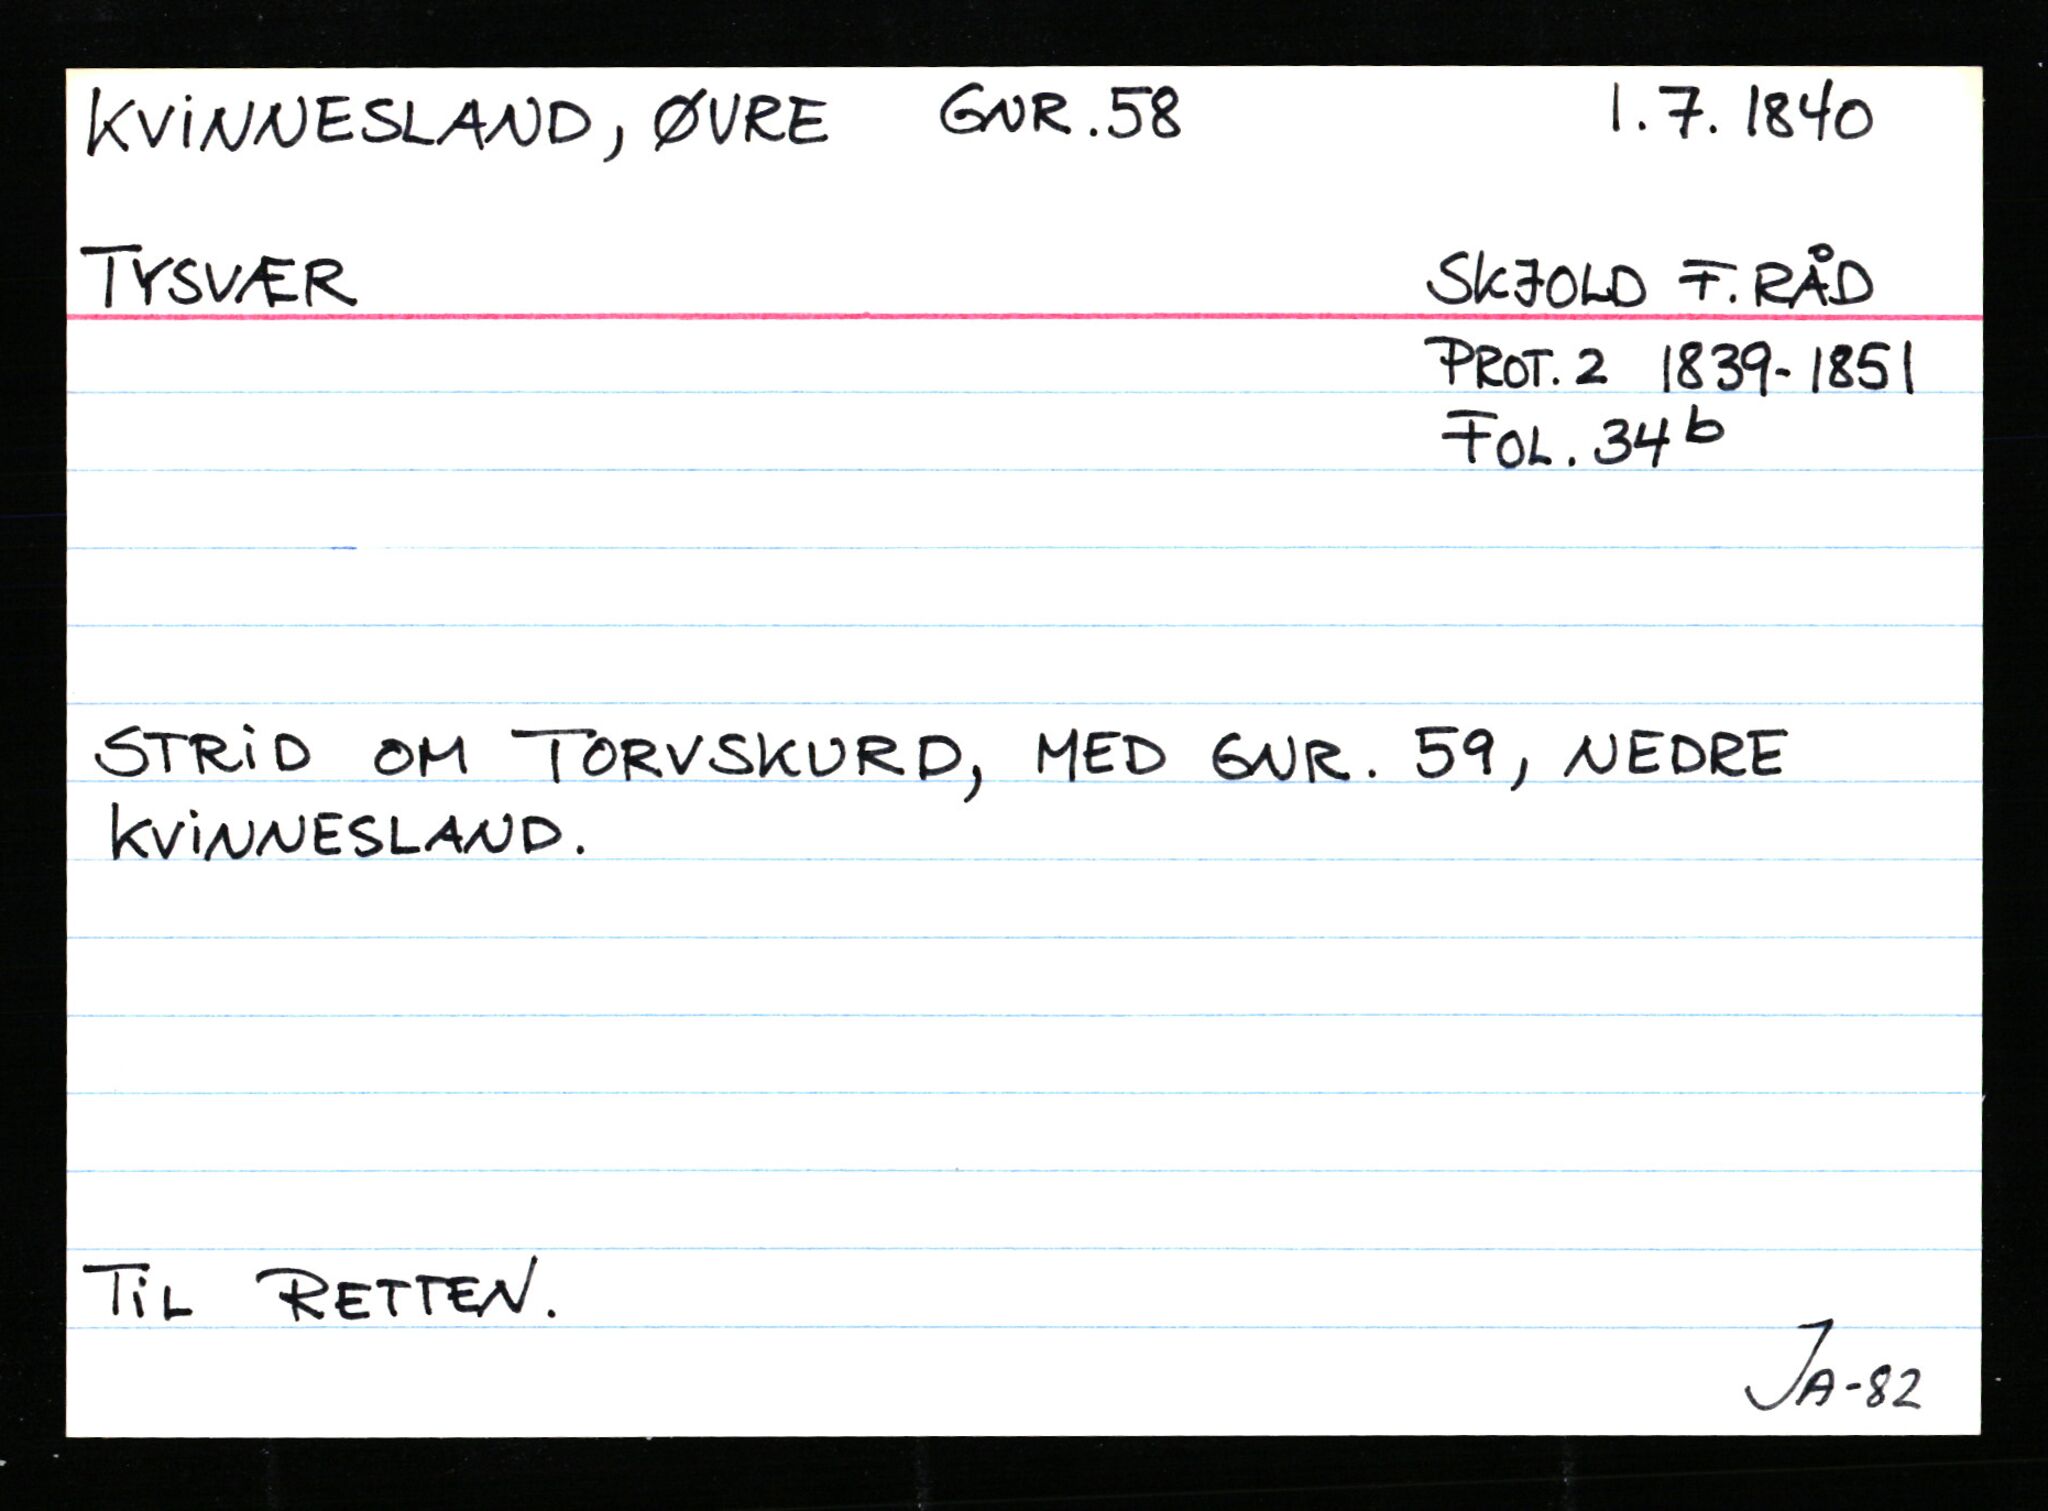 KVINNESLAND, ØVRE GNR. 58 1.7. 1840
TYSVÆR SKJOLD F. RÅD
PROT. 2 1839-1851
FOL. 34b
STRID OM TORVSKURD, MED GNR. 59, NEDRE
KVINNESLAND.
TIL RETTEN.
JA-82